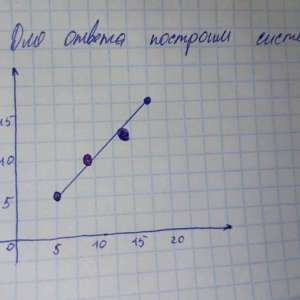 Для ответа построим систе
15
10
5
0 5 10 15 20